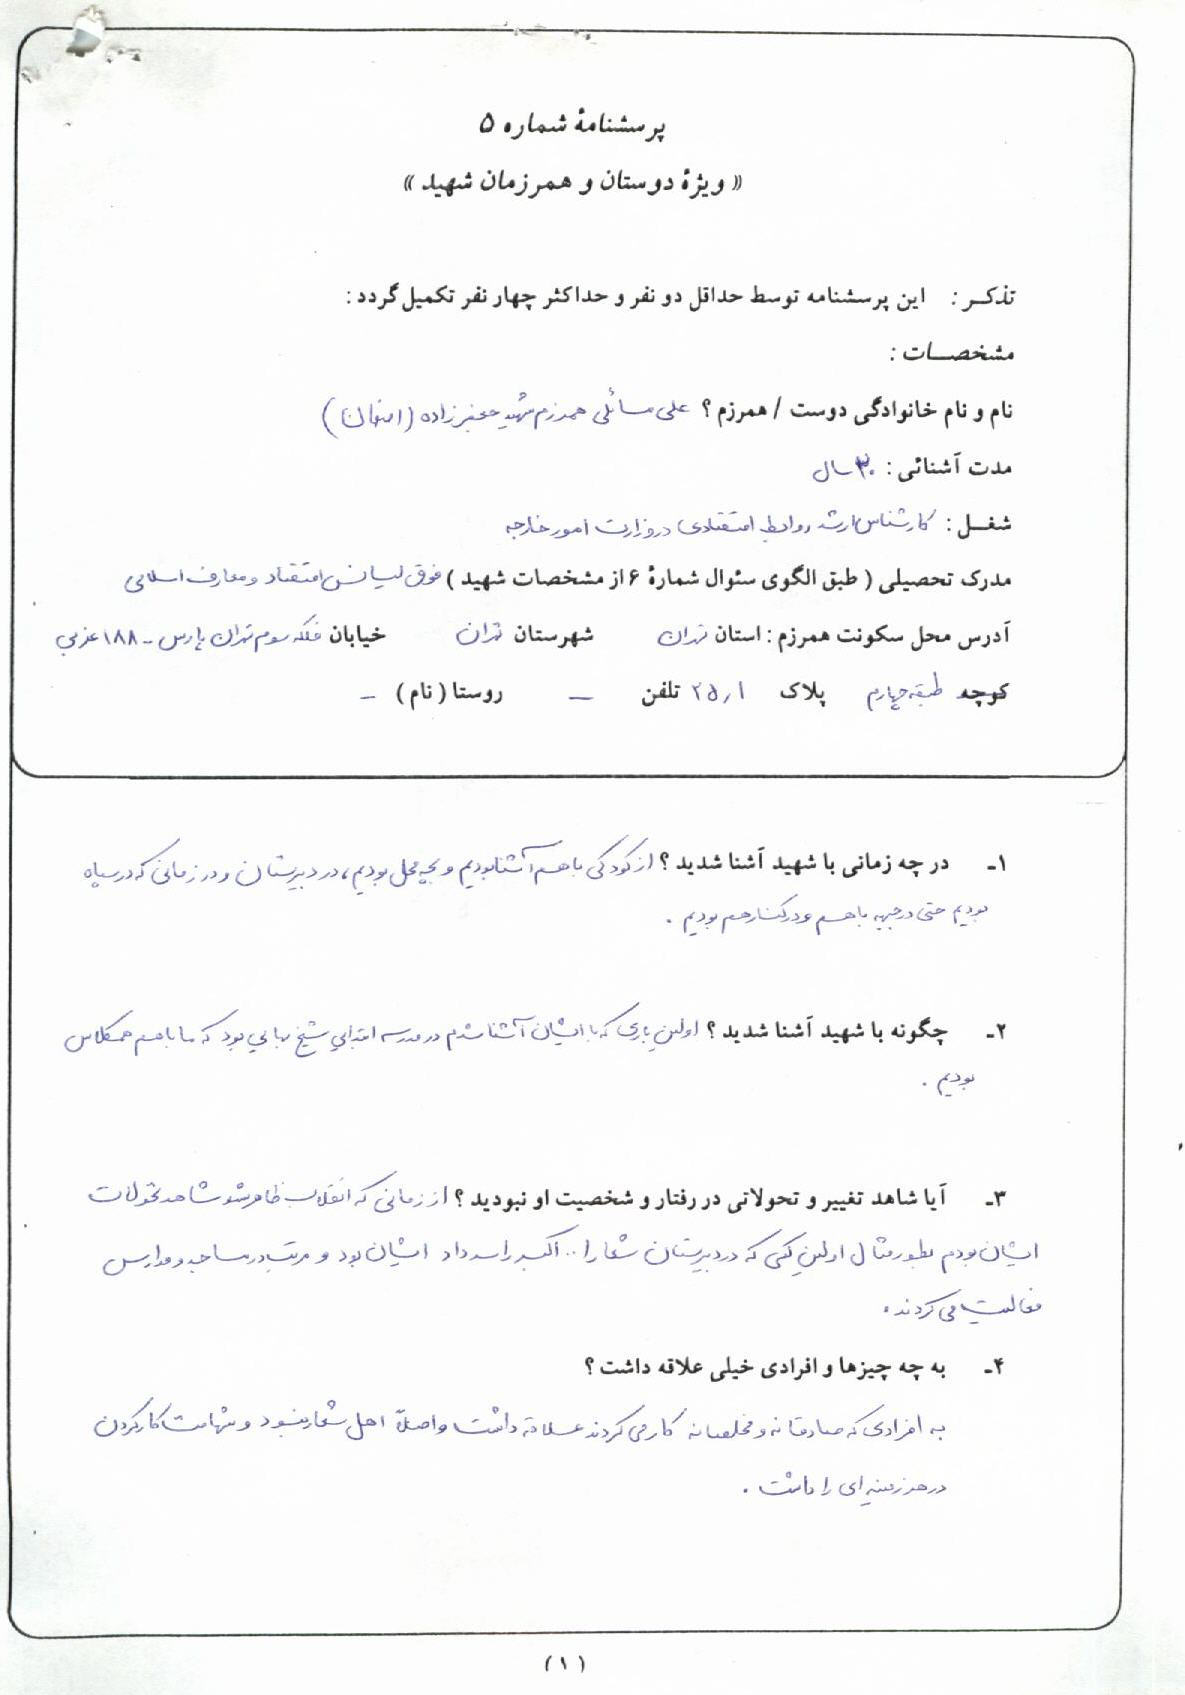 پرسشنامهٔ شماره ۵
« ویژهٔ دوستان و همرزمان شهید »
تذکر : این پرسشنامه توسط حداقل دو نفر و حداکثر چهار نفر تکمیل گردد :
مشخصات :
نام و نام خانوادگی دوست / همرزم ؟ علی مسائلی همرزم شهید جعفرزاده (اصفهان)
مدت آشنائی : ۳۰ سال
شغل : کارشناس ارشد روابط اقتصادی در وزارت امور خارجه
مدرک تحصیلی ( طبق الگوی سئوال شمارهٔ ۶ از مشخصات شهید ) فوق لیسانس اقتصاد و معارف اسلامی
آدرس محل سکونت همرزم : استان تهران شهرستان تهران خیابان فلکه سوم تهران پارس - ۱۸۸ غربی
کوچه طبقه چهارم پلاک ۲۵٫۱ تلفن — روستا ( نام ) —
۱- در چه زمانی با شهید آشنا شدید ؟ از کودکی با هم آشنا بودیم و بچه محل بودیم، در دبیرستان و در زمانی که در سپاه
بودیم حتی در جبهه با هم و در کنار هم بودیم .
۲- چگونه با شهید آشنا شدید ؟ اولین باری که با ایشان آشنا شدم در مدرسه ابتدایی شیخ بهایی بود که ما با هم همکلاس
بودیم .
۳- آیا شاهد تغییر و تحولاتی در رفتار و شخصیت او نبودید ؟ از زمانی که انقلاب ظاهر شد شاهد تحولات
ایشان بودم بطور مثال اولین کسی که در دبیرستان شعار ا... اکبر را سر داد ایشان بود و مرتب در مساجد و مدارس
فعالیت می کردند.
۴- به چه چیزها و افرادی خیلی علاقه داشت ؟
به افرادی که صادقانه و مخلصانه کار می کردند علاقه داشت و اصلاً اهل شعار نبود و شهامت کار کردن
در هر زمینه ای را داشت .
( ۱ )